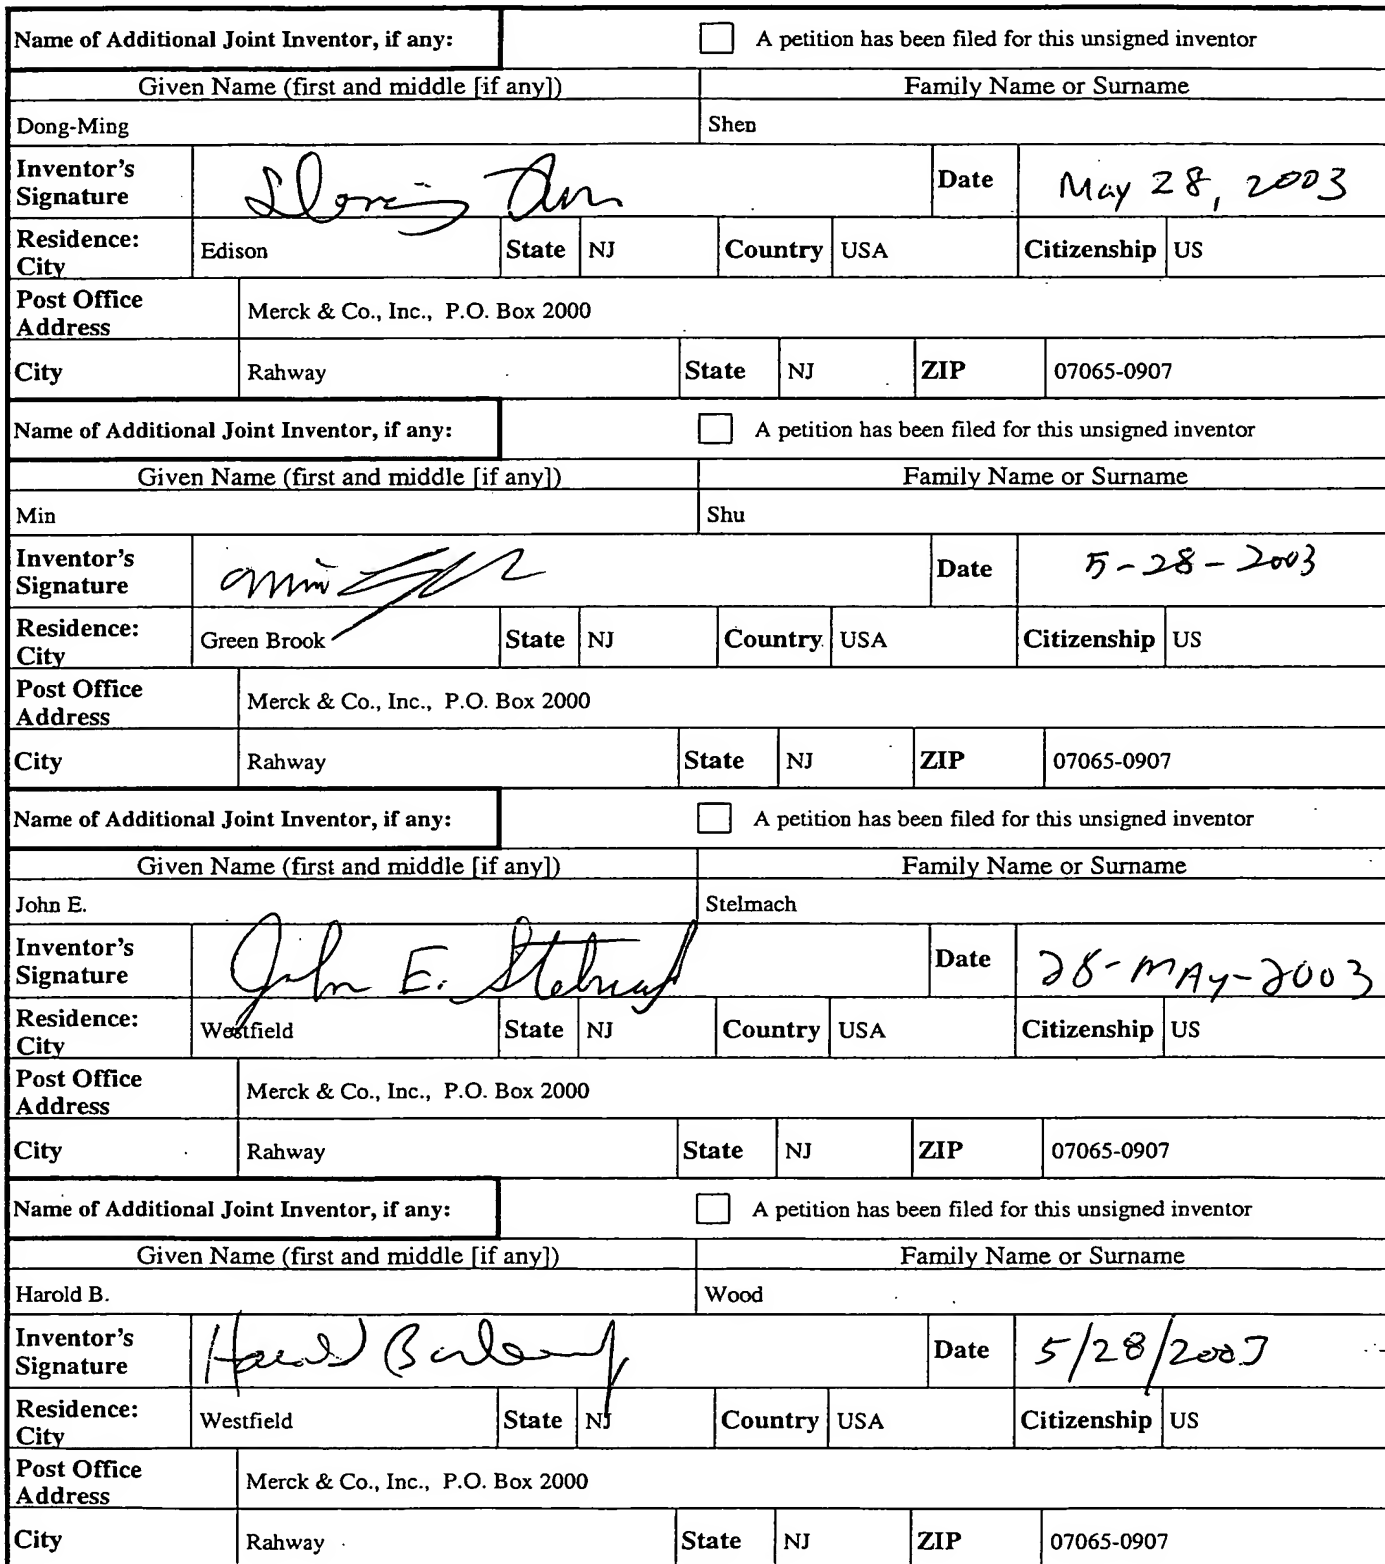 Name of Additional Joint Inventor, if any: A petition has been filed for this unsigned inventor
Given Name (first and middle [if any]) Family Name or Surname
Dong-Ming Shen
Inventor's Signature Date May 28, 2003
Residence: City Edison State NJ Country USA Citizenship US
Post Office Address Merck & Co., Inc., P.O. Box 2000
City Rahway State NJ ZIP 07065-0907
Name of Additional Joint Inventor, if any: A petition has been filed for this unsigned inventor
Given Name (first and middle [if any]) Family Name or Surname
Min Shu
Inventor's Signature Min Date 5-28-2003
Residence: City Green Brook State NJ Country USA Citizenship US
Post Office Address Merck & Co., Inc., P.O. Box 2000
City Rahway State NJ ZIP 07065-0907
Name of Additional Joint Inventor, if any: A petition has been filed for this unsigned inventor
Given Name (first and middle [if any]) Family Name or Surname
John E. Stelmach
Inventor's Signature John E. Stelmach Date 28-MAY-2003
Residence: City Westfield State NJ Country USA Citizenship US
Post Office Address Merck & Co., Inc., P.O. Box 2000
City Rahway State NJ ZIP 07065-0907
Name of Additional Joint Inventor, if any: A petition has been filed for this unsigned inventor
Given Name (first and middle [if any]) Family Name or Surname
Harold B. Wood
Inventor's Signature Harold Date 5/28/2003
Residence: City Westfield State NJ Country USA Citizenship US
Post Office Address Merck & Co., Inc., P.O. Box 2000
City Rahway State NJ ZIP 07065-0907